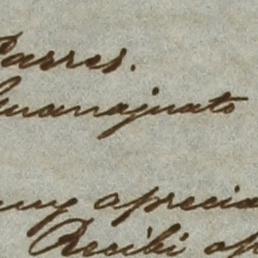 Parres.
Guanajuato
muy aprecia
Recibi op